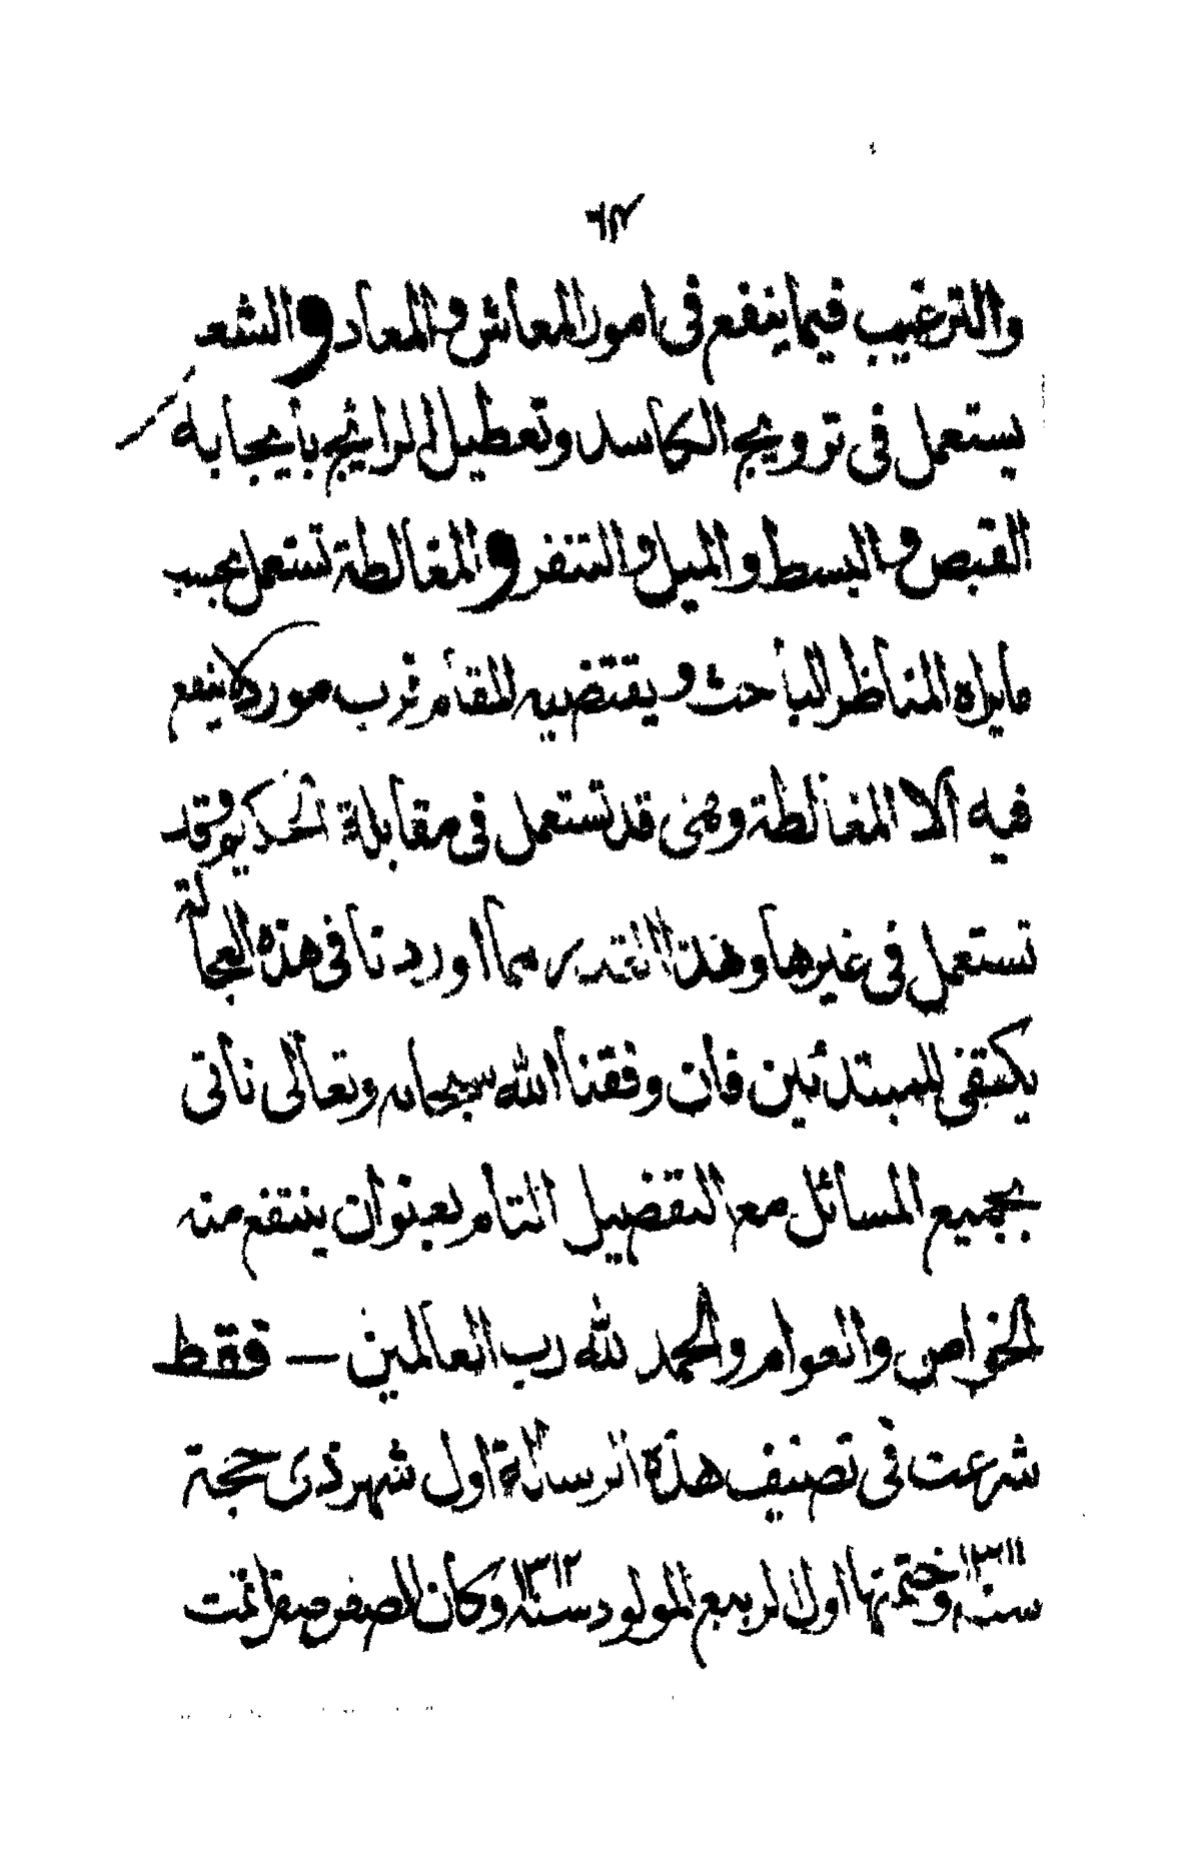 والترغيب فيما ينفع فى امور المعاش والمعاد والشعر
يستعمل فى ترويج الكاسد وتعطيل الرائج بايجابه
القبض والبسط والميل والتنفر والمغالطة تستعمل بحسب
مايراه المناظر الباحث ويقتضيه المقام فرب مورد لا ينفع
فيه الا المغالطة وهى قد تستعمل فى مقابلة الحكيم وقد
تستعمل فى غيرها وهذا القدر مما اوردنا فى هذه العجالة
يكتفى للمبتدئين فان وفقنا الله سبحانه وتعالى ناتى
بجميع المسائل مع التفصيل التام بعنوان ينتفع منه
الخواص والعوام والحمد لله رب العالمين — فقط
شرعت فى تصنيف هذه الرسالة اول شهر ذى حجة
سنه ١٣١١ وختمتها اول الربيع المولود سنه ١٣١٢ وكان الصفر صفرا تمت